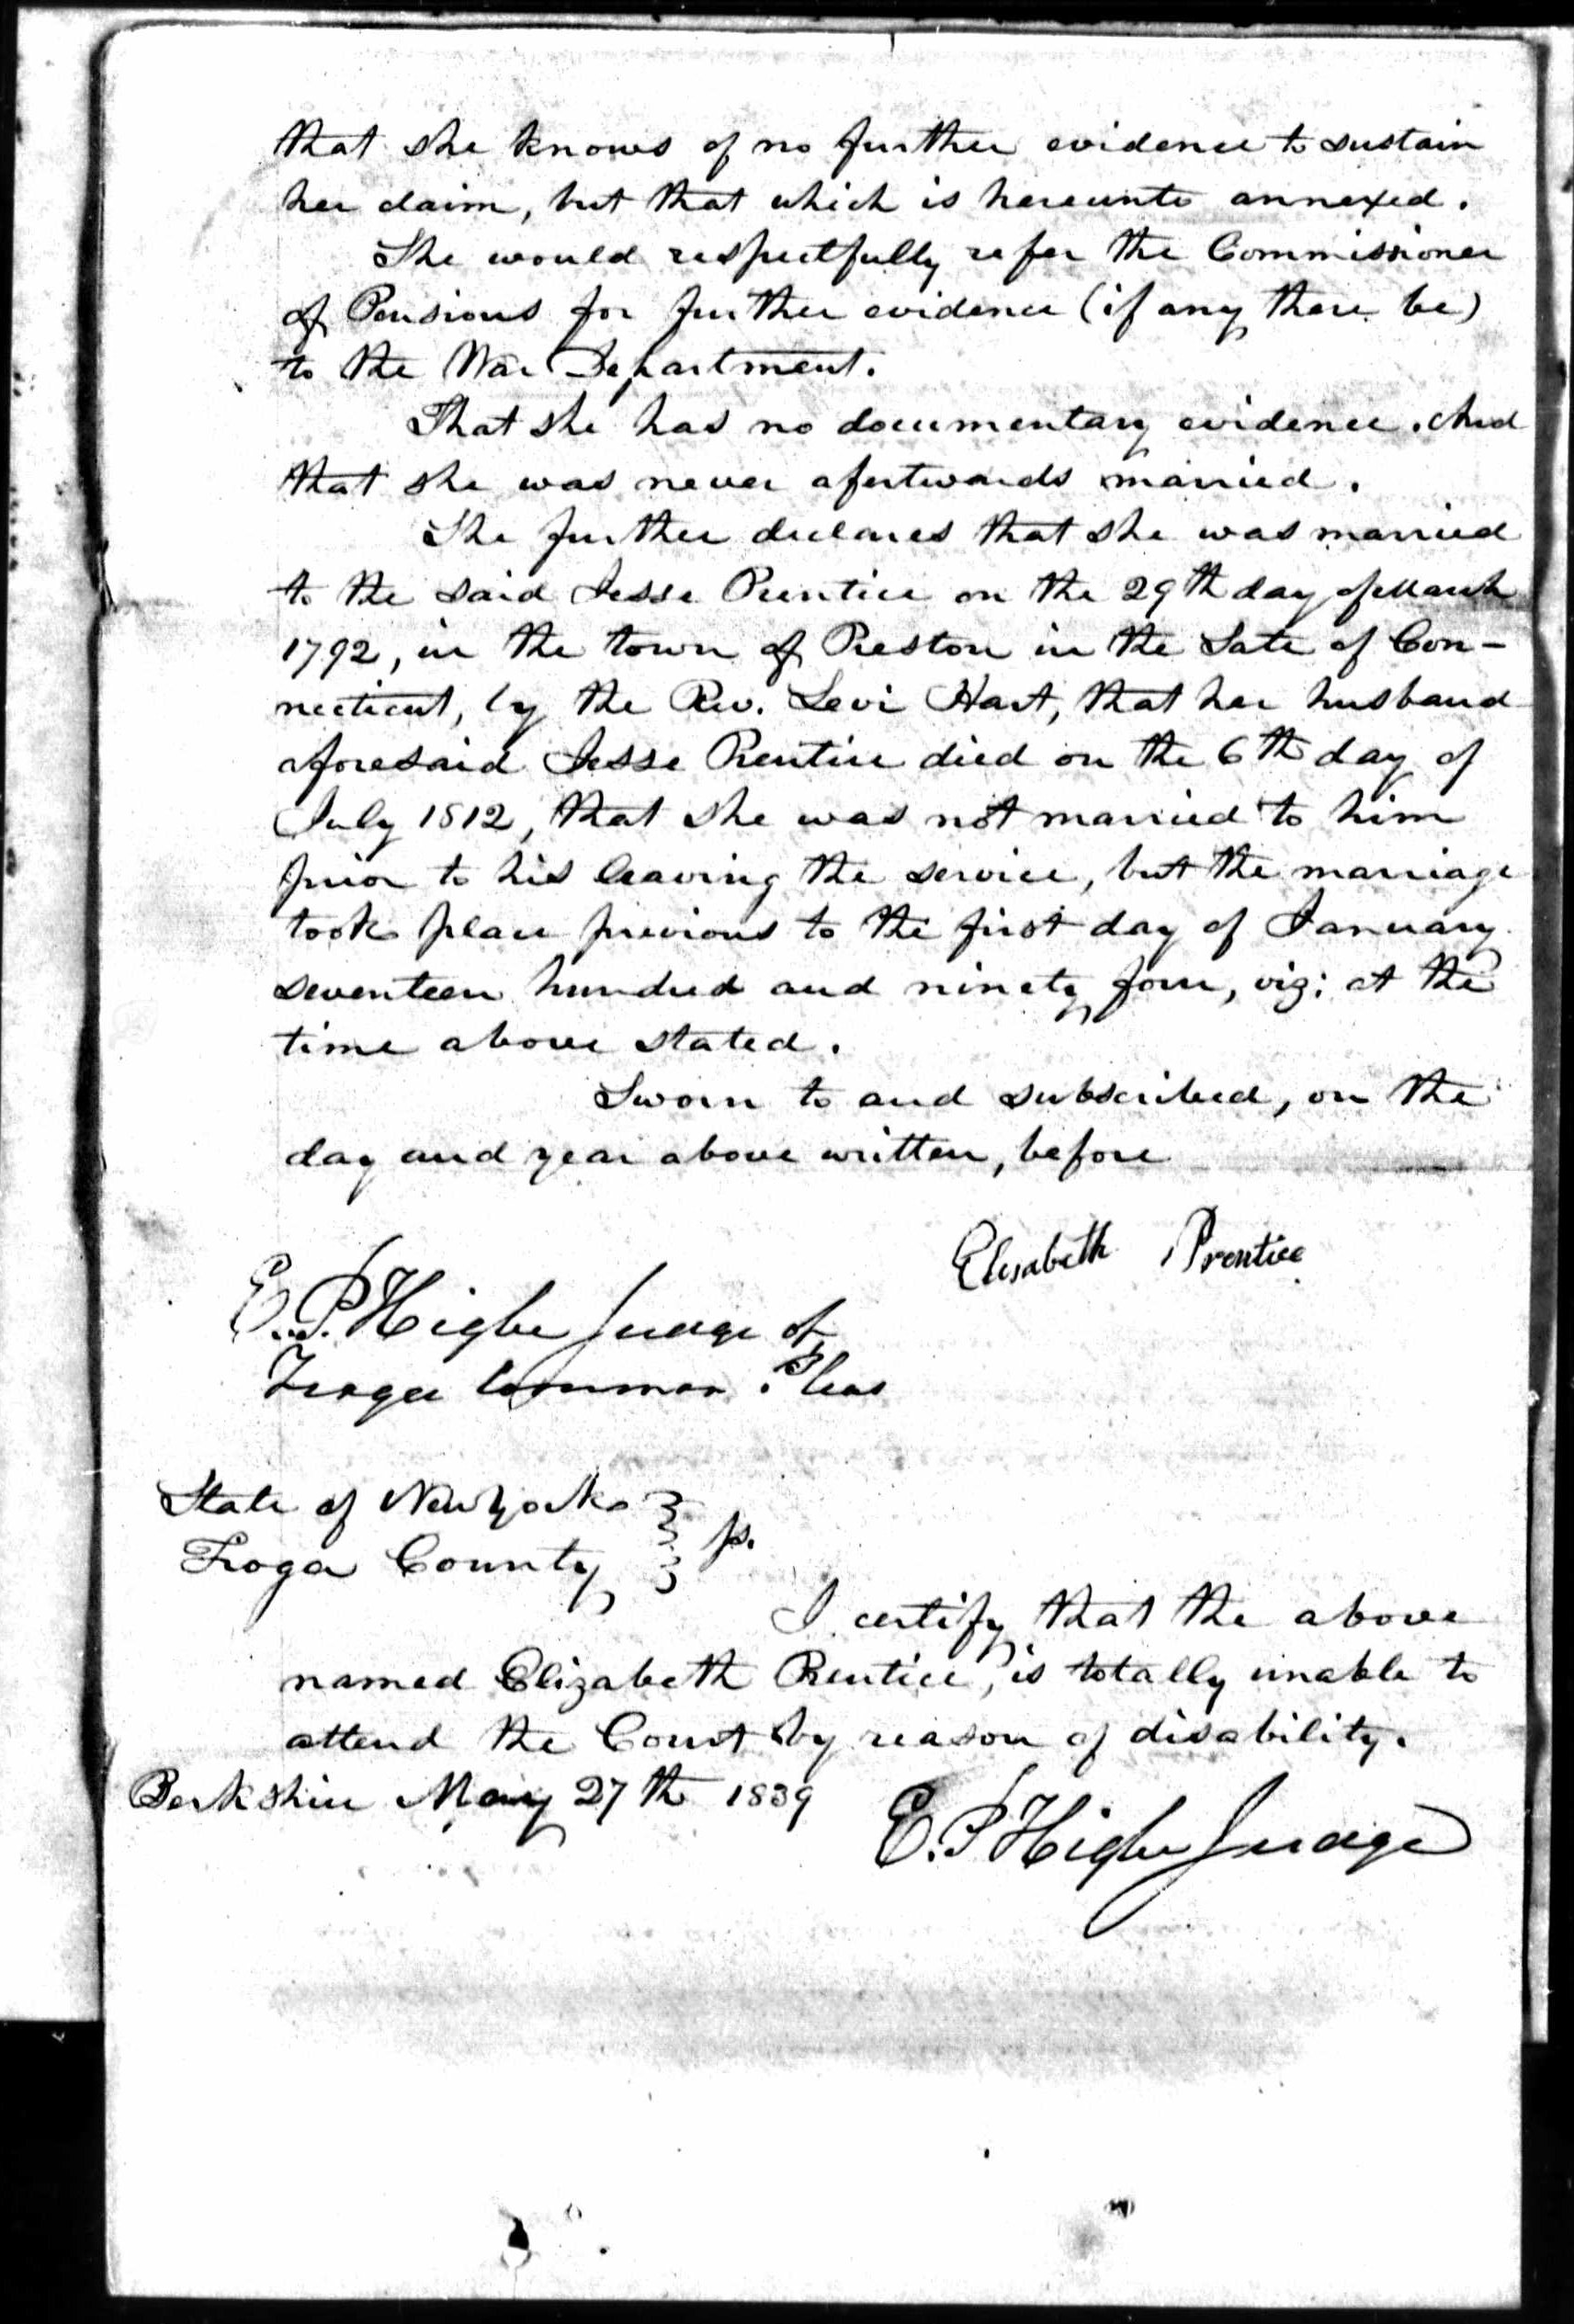 that she knows of no further evidence to sustain
her claim, but that which is hereunto annexed.
She would respectfully refer the Commissioner
of Pensions for further evidence (if any there be)
to the War Department.
That she has no documentary evidence. And
that she was never afertwards married.
She further declares that she was married
to the said Jesse Prentice on the 29th day of March
1792, in the town of Preston in the Sate of Con-
necticut, by the Rev. Levi Hart, that her husband
aforesaid Jesse Prentice died on the 6th day of
July 1812, that she was not married to him
prior to his leaving the service, but the marriage
took place previous to the first day of January
seventeen hundred and ninety four, viz: at the
time above stated.
Sworn to and subscribed, on the
day and year above written, before
Elisabeth Prentice
E. P. Higbe Judge of
Tioga Common Pleas
State of New York
Tioga County } ss.
I certify that the above
named Elizabeth Prentice, is totally unable to
attend the Court by reason of disability.
Berkshire May 27th 1839
E. P Higbe Judge